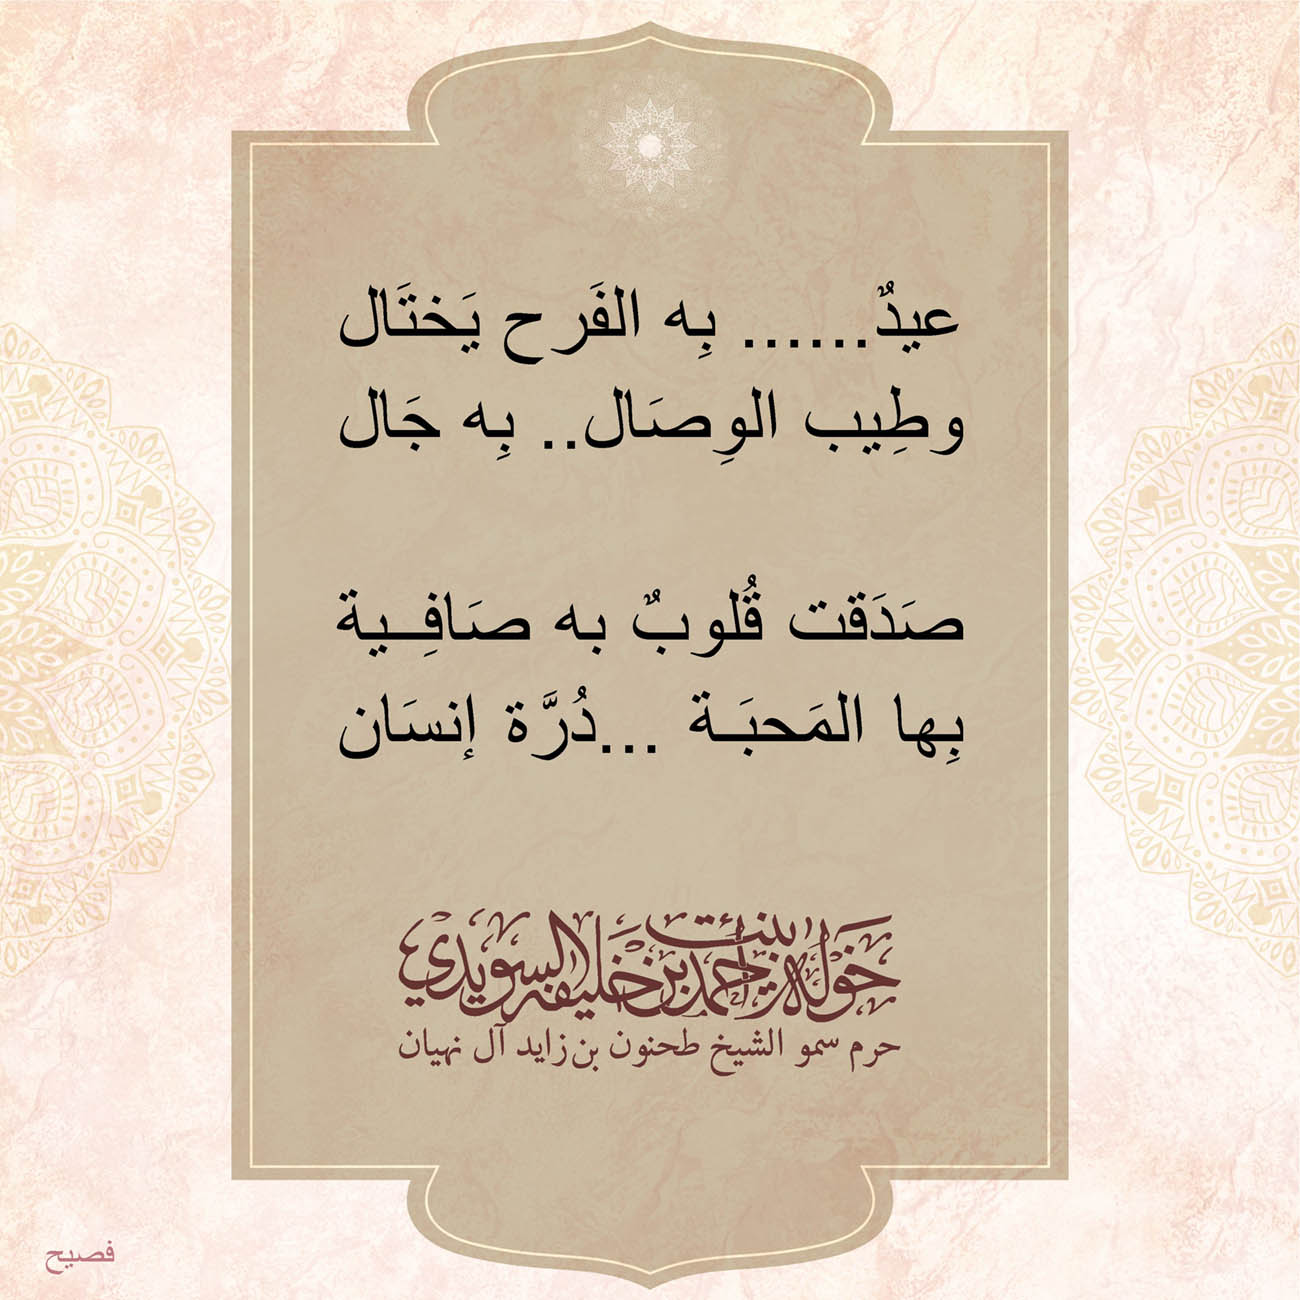 عيدٌ...... بِه الفَرح يَختَال
وطِيب الوِصَال.. بِه جَال
صَدَقت قُلوبٌ به صَافِــية
بِها المَحبَـة ...دُرَّة إنسَان
خولة بنت أحمد بن خليفة السويدي
حرم سمو الشيخ طحنون بن زايد آل نهيان
فصيح